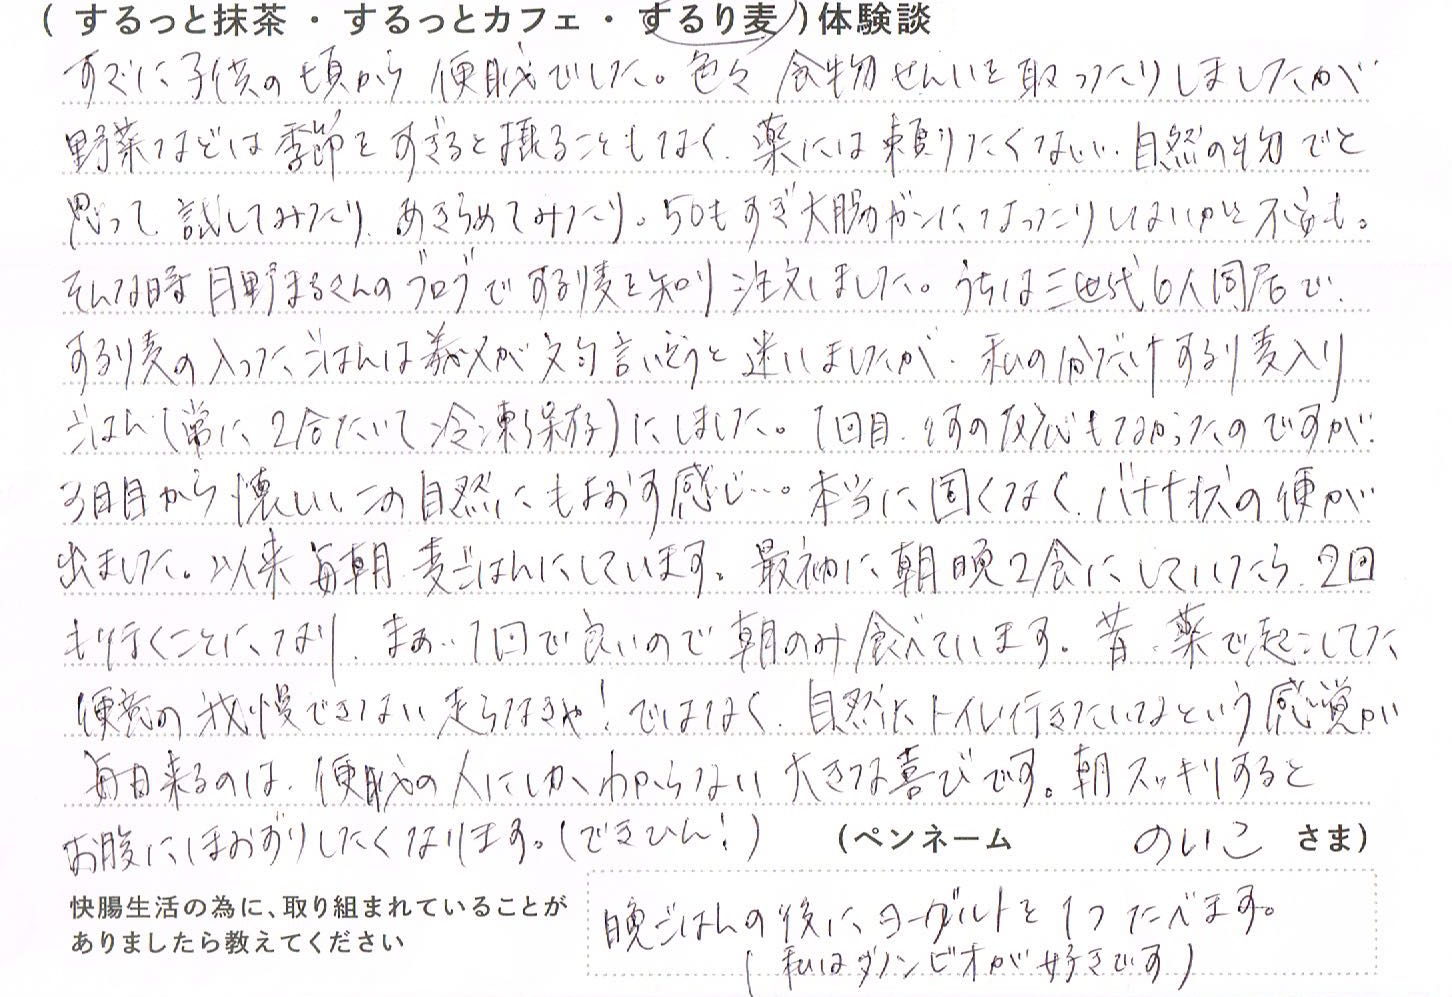 ( するっと抹茶 ・ するっとカフェ ・ するり麦 ) 体験談
すでに子供の頃から便秘でした。色々 食物せんいを取ったりしましたが
野菜などは季節をすぎると摂ることもなく、薬には頼りたくない… 自然の物でと
思って、試してみたり、あきらめてみたり。50もすぎ大腸ガンになったりしないかと不安も。
そんな時 月野まるくんのブログでするり麦を知り注文しました。うちは三世代6人同居で、
するり麦の入ったごはんは義父が文句言いそうと迷いましたが、私の分だけするり麦入り
ごはん(常に2合たいて冷凍保存)にしました。1回目、何の反応もなかったのですが、
3日目から懐しいこの自然にもよおす感じ…。本当に固くなく、バナナ状の便が
出ました。以来 毎朝、麦ごはんにしています。最初に朝晩2食にしていたら、2回
も行くことになり、まあ…1回で良いので朝のみ食べています。昔、薬で起こしてた
便意の我慢できない 走らなきゃ!ではなく、自然にトイレ行きたいなという感覚が
毎日来るのは、便秘の人にしかわからない 大きな喜びです。朝スッキリすると
お腹にほおずりしたくなります。(できひん!)
(ペンネーム のいこ さま)
快腸生活の為に、取り組まれていることが
ありましたら教えてください
晩ごはんの後に、ヨーグルトを1つたべます。
(私はダノンビオが好きです)